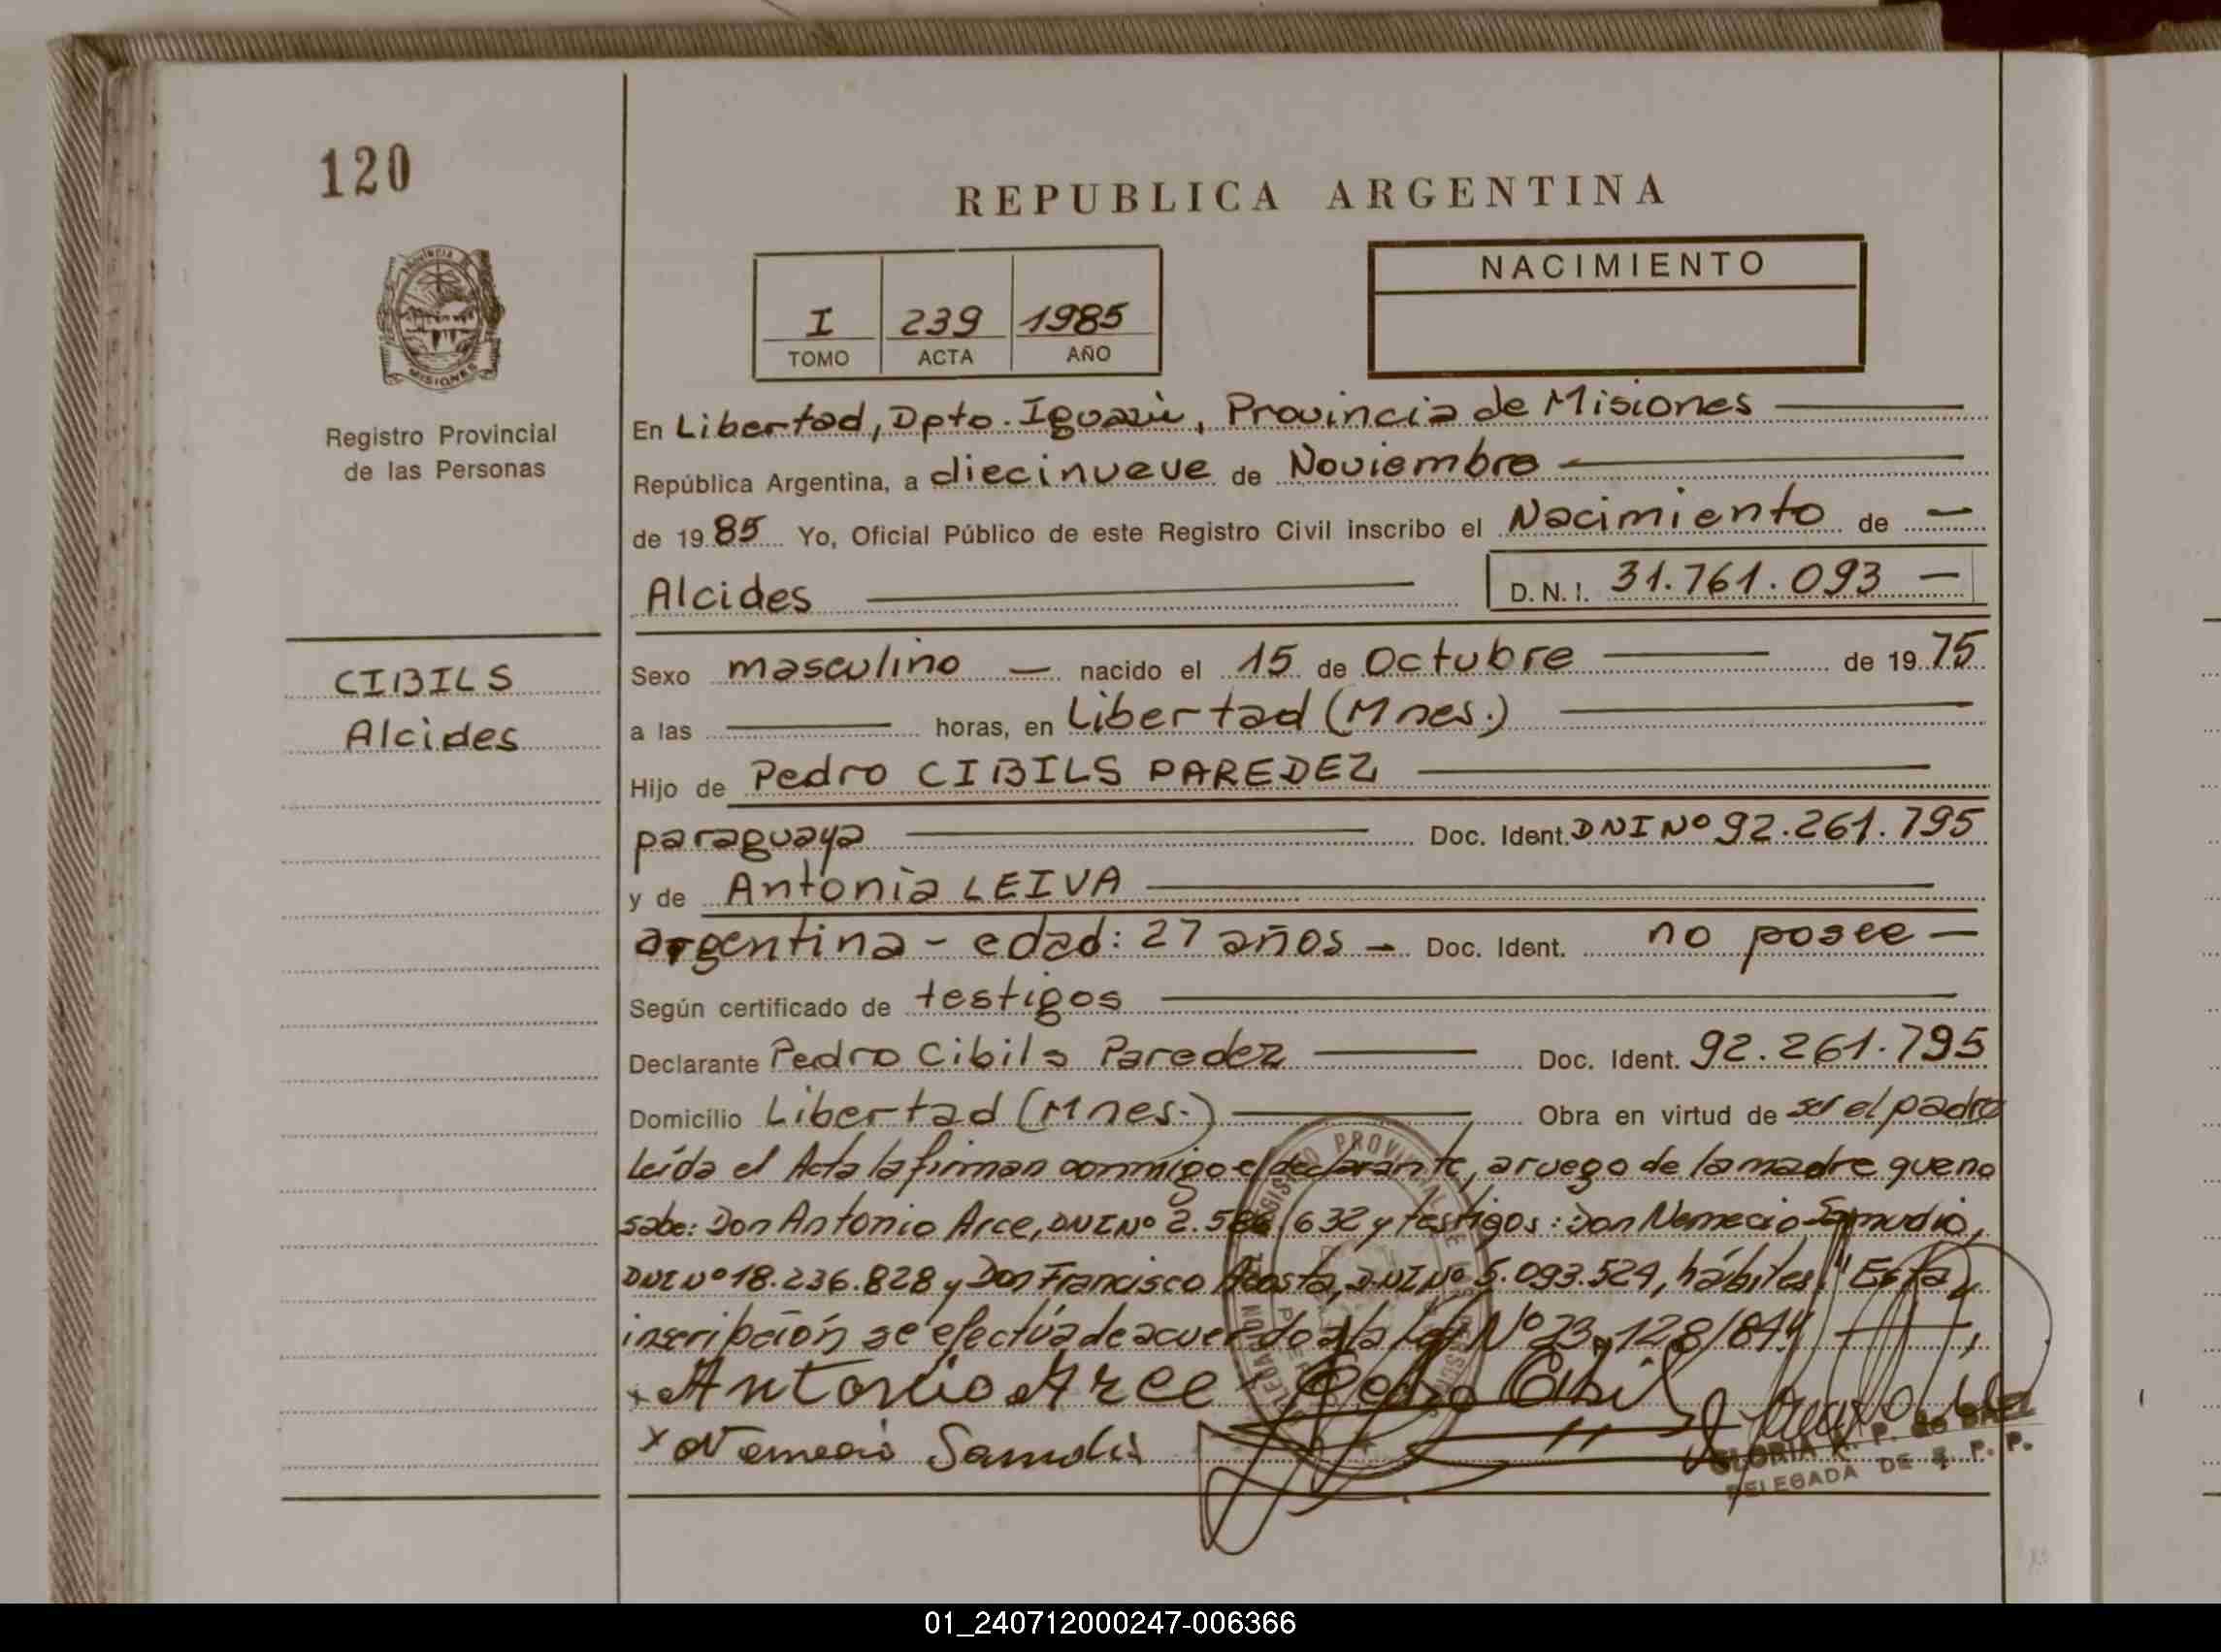 120
REPUBLICA ARGENTINA
PROVINCIA DE
MISIONES
Registro Provincial
de las Personas
I 239 1985
TOMO ACTA AÑO
NACIMIENTO
En Libertad, Dpto. Iguazú, Provincia de Misiones
República Argentina, a diecinueve de Noviembre
de 1985 Yo, Oficial Público de este Registro Civil inscribo el Nacimiento de —
Alcides
D. N. I. 31.761.093 —
CIBILS
Alcides
Sexo masculino — nacido el 15 de Octubre — de 1975
a las — horas, en Libertad (Mnes.)
Hijo de Pedro CIBILS PAREDEZ
paraguaya — Doc. Ident. DNI Nº 92.261.795
y de Antonia LEIVA
argentina - edad: 27 años — Doc. Ident. no posee —
Según certificado de testigos
Declarante Pedro Cibils Paredez — Doc. Ident. 92.261.795
Domicilio Libertad (Mnes.) — Obra en virtud de ser el padre
Leída el Acta la firman conmigo el declarante, a ruego de la madre que no
sabe: Don Antonio Arce, DNI Nº 2.586.632 y testigos: Don Nemecio Samudio,
DNI Nº 18.236.828 y Don Francisco Acosta, DNI Nº 5.093.524, hábiles. "Esta
inscripción se efectúa de acuerdo a la Ley Nº 23.128/84"
x Antonio Arce Pedro Cibil
x Nemecio Samudio
GLORIA R. P. de BAEZ
DELEGADA DE R. P. P.
01_240712000247-006366